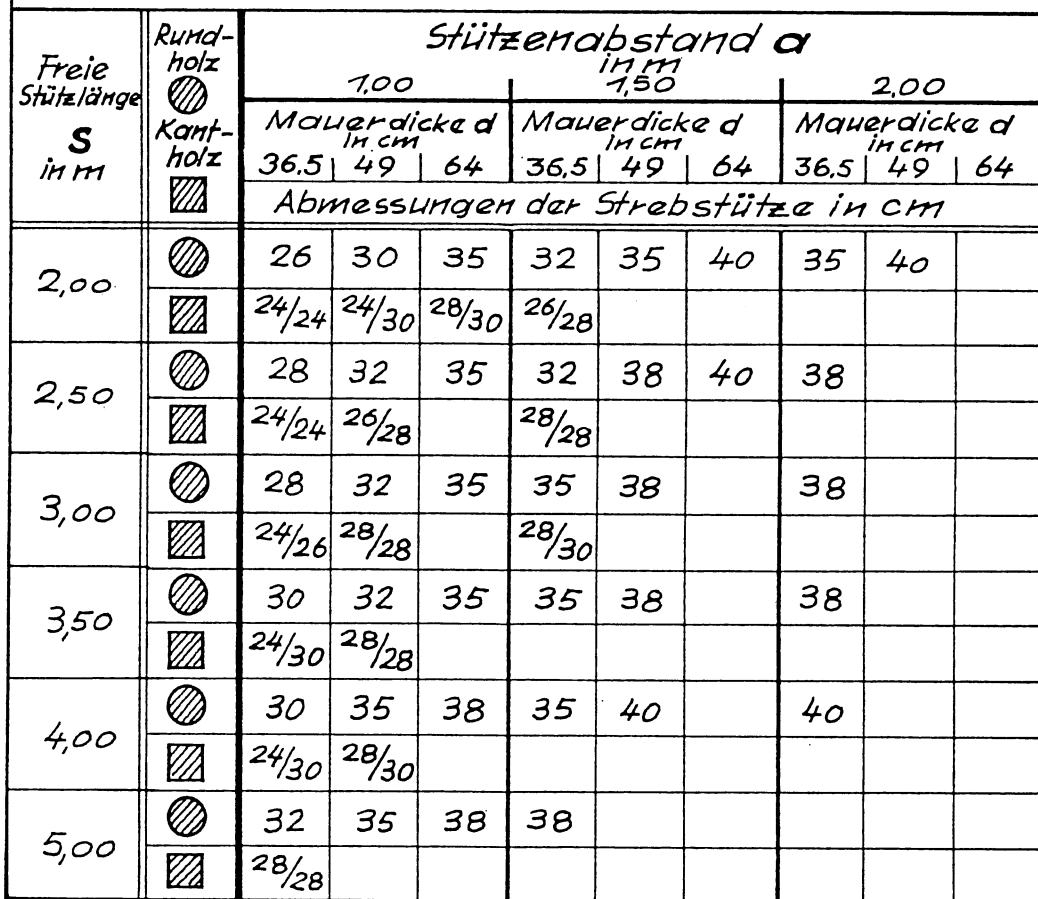 Freie Stützlänge S in m | Rundholz Kantholz | Stützenabstand a in m
1,00 | 1,50 | 2,00
Mauerdicke d in cm | Mauerdicke d in cm | Mauerdicke d in cm
36,5 | 49 | 64 | 36,5 | 49 | 64 | 36,5 | 49 | 64
Abmessungen der Strebstütze in cm
2,00 | 26 | 30 | 35 | 32 | 35 | 40 | 35 | 40
24/24 | 24/30 | 28/30 | 26/28
2,50 | 28 | 32 | 35 | 32 | 38 | 40 | 38
24/24 | 26/28 | | 28/28
3,00 | 28 | 32 | 35 | 35 | 38 | | 38
24/26 | 28/28 | | 28/30
3,50 | 30 | 32 | 35 | 35 | 38 | | 38
24/30 | 28/28
4,00 | 30 | 35 | 38 | 35 | 40 | | 40
24/30 | 28/30
5,00 | 32 | 35 | 38 | 38
28/28